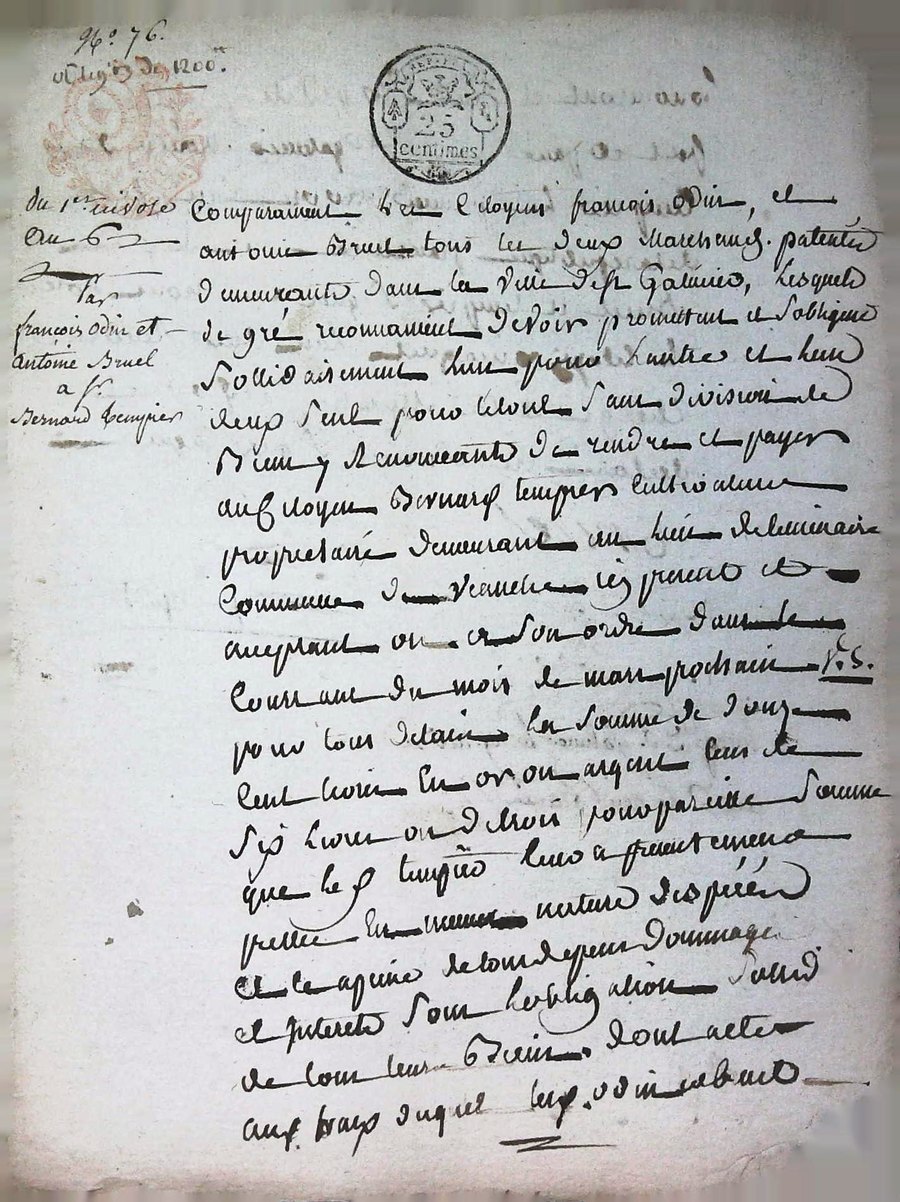 N.º 76.
oblig.on de 1200.tt
25
centimes
du 1.er nivose
an 6
Par
françois Odin et
Antoine Bruel
a S.r
Bernard tempier
Comparaissent les Citoyens françois odin, et
antoine Bruel tous les deux Marchands patentés
demeurants dans la ville de St Galmier, lesquels
de gré reconnaissent devoir promettent et sobligent
Sollidairement lun pour Lautre et lun
deux seul pour letout sans division de
Bien y Renoncants de rendre et payer
au Citoyen Bernard tempier Cultivateur
proprietaire demeurant au lieu
Commune de Veauche icy present et
acceptant ou a son ordre dans le
Courrant du mois de mars prochain V.S.
pour tous delais la somme de douze
Cent livres En or ou argent Ecus de
Six livres ou de trois pour pareille Somme
que le C. tempier leur a presentement
prettée En même nature despéces
et ce a peine de tous depens Dommages
et Interets sous Lobligation Sollid
de tous leurs Biens, dont acte
aux fraix duquel les d. odin et bruel